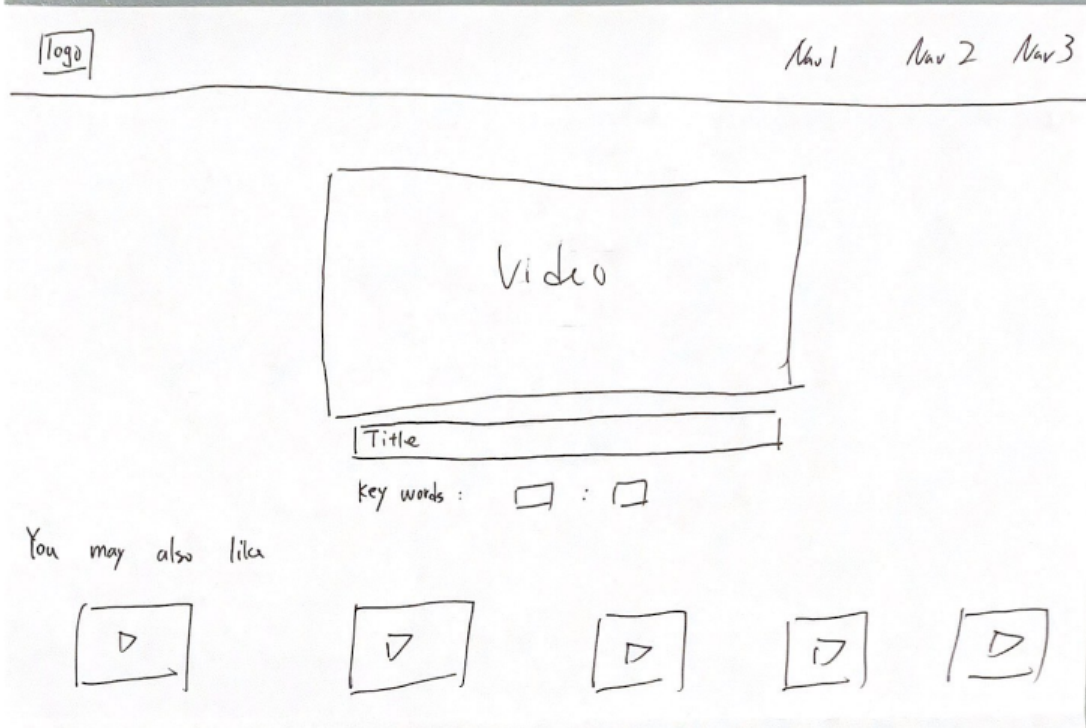 logo Nav 1 Nav 2 Nav 3
Video
Title
key words : :
You may also like